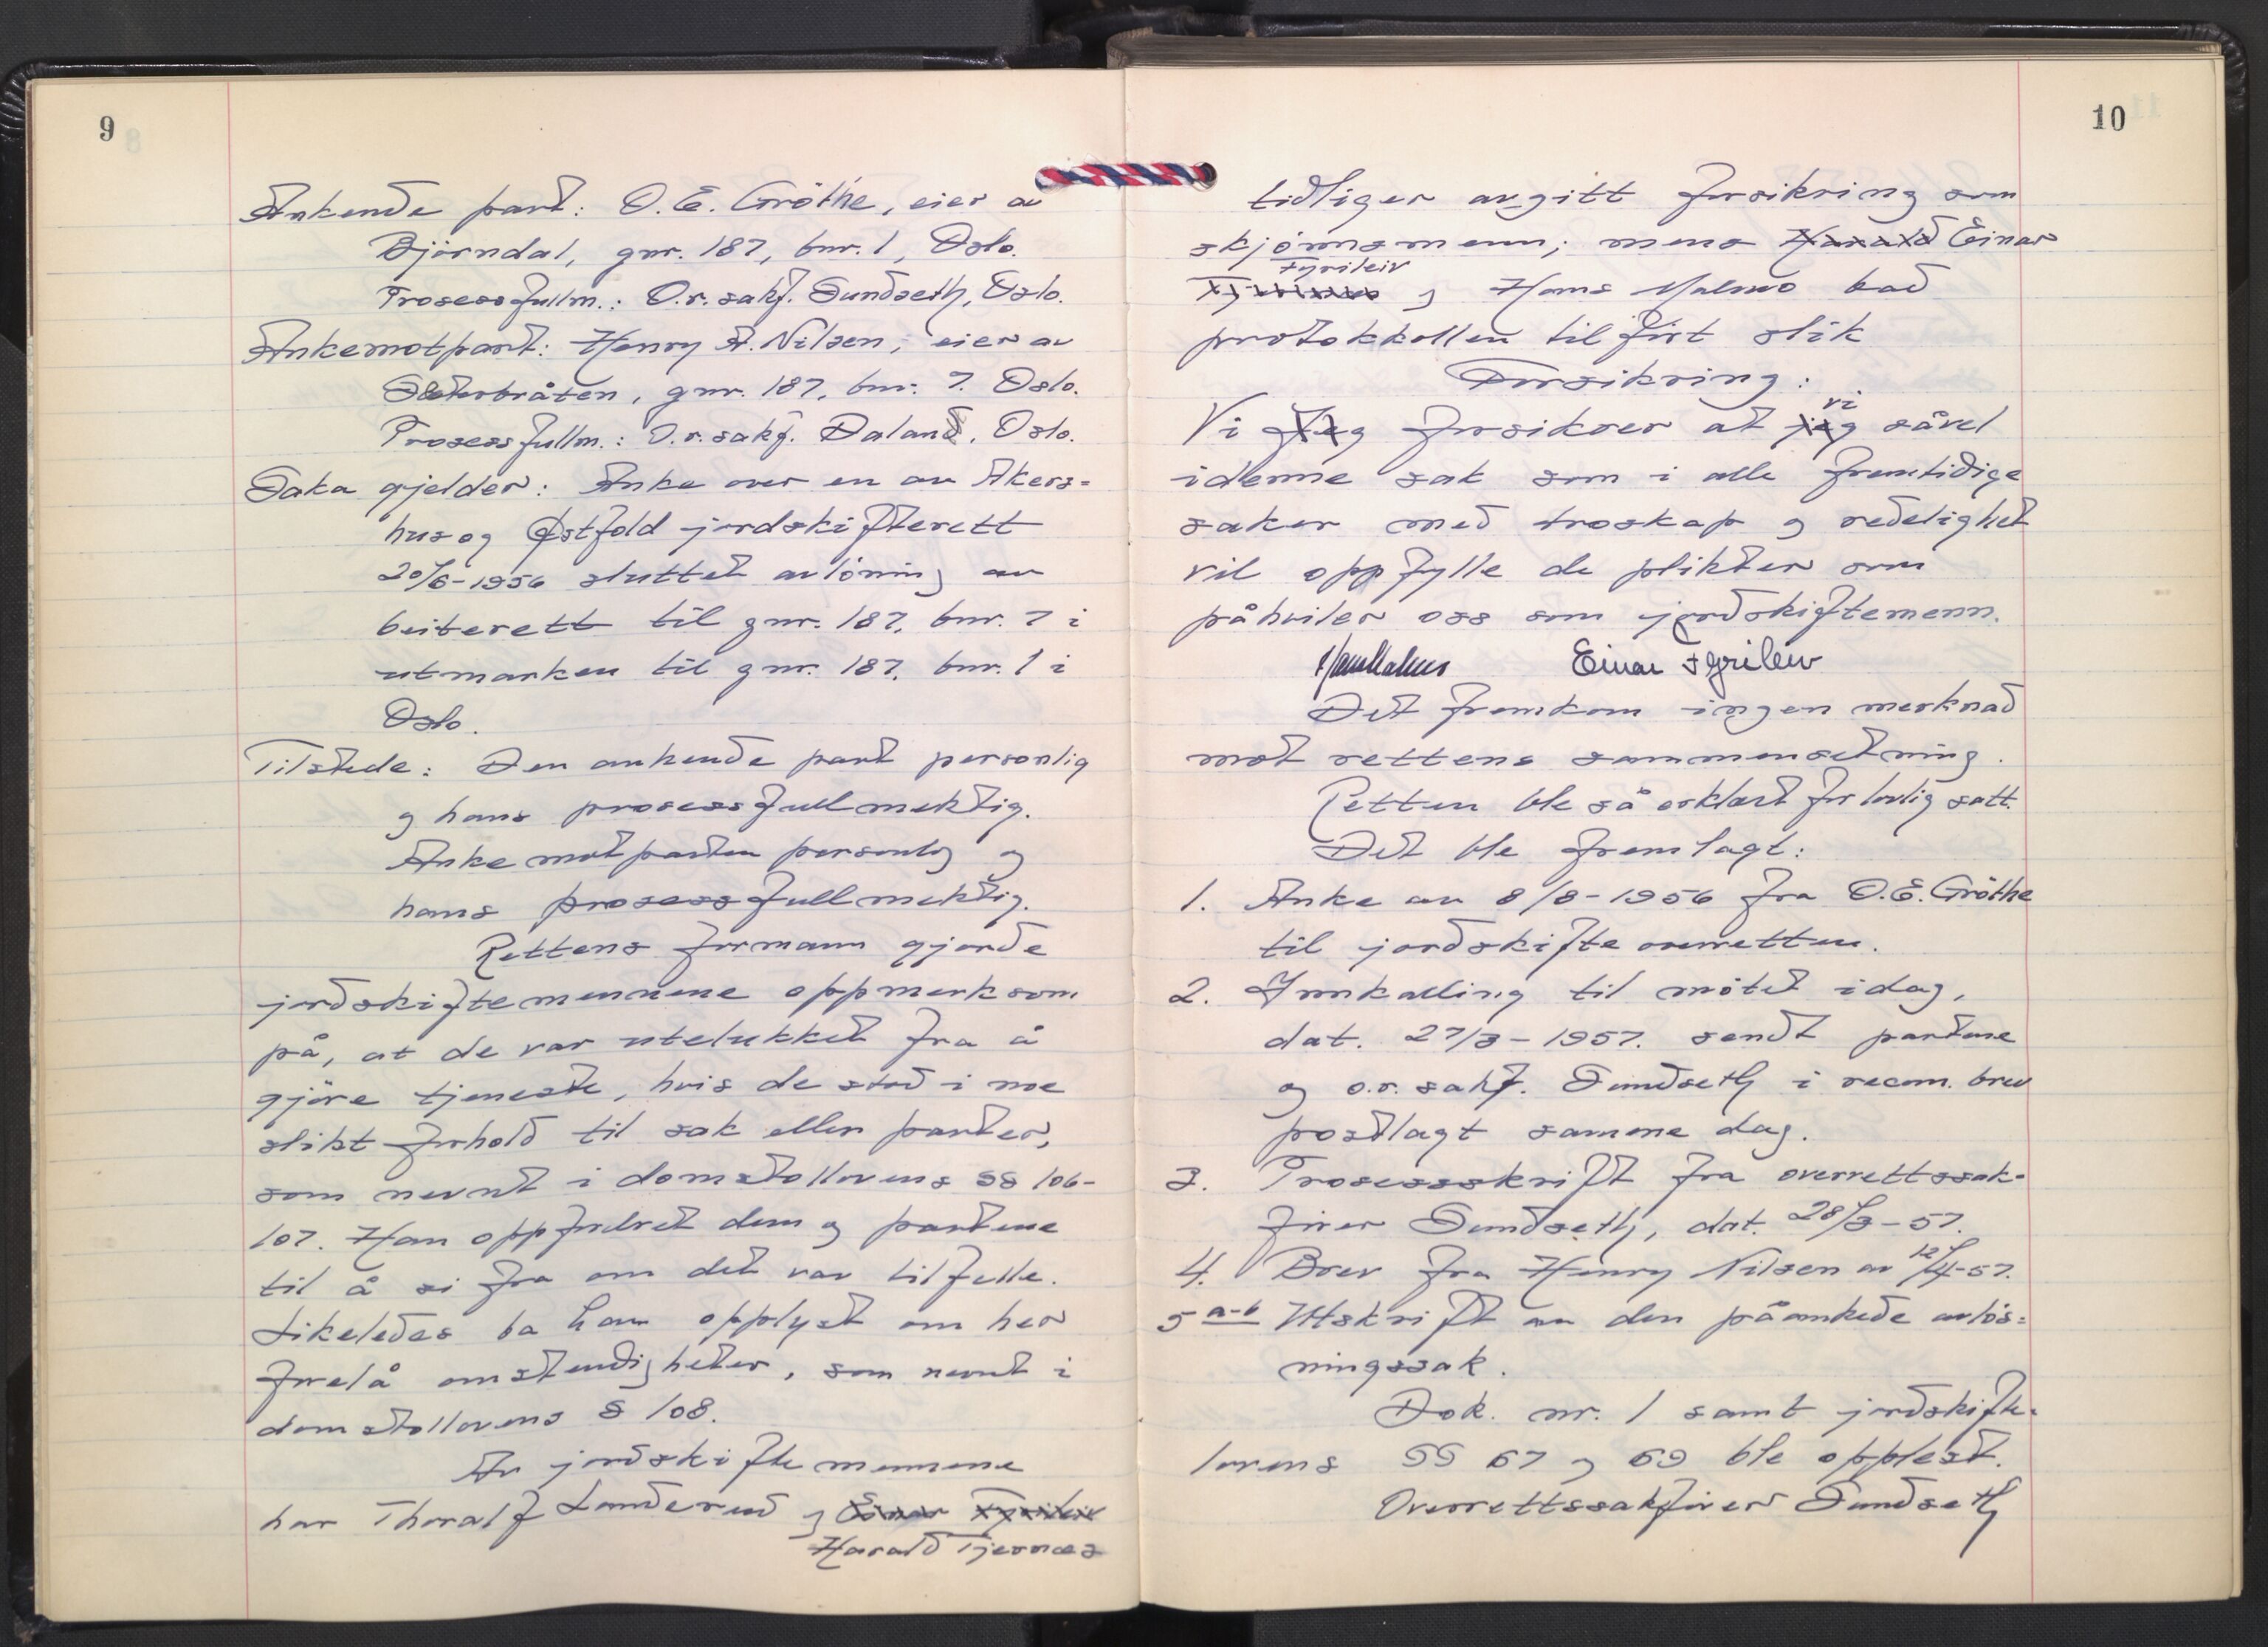 9
Ankende part: O.E. Gröthe, eier av
Björndal, gnr. 187, bnr. 1, Oslo.
Prosessfullm.: O.r.sakf. Sundseth, Oslo.
Ankemotpart: Henry A. Nilsen, eier av
Sæterbråten, gnr. 187, bnr. 7. Oslo.
Prosessfullm.: O.r.sakf. Daland, Oslo.
Saka gjelder: Anke over en av Akers=
hus og Østfold jordskifterett
20/6-1956 sluttet avlösning av
beiterett til gnr. 187, bnr. 7 i
utmarken til gnr. 187, bnr. 1 i
Oslo.
Tilstede: Den ankende part personlig
og hans prosessfullmektig.
Ankemotparten personlig og
hans prosessfullmektig.
Rettens formann gjorde
jordskiftemennene oppmerksom
på, at de var utelukket fra å
gjöre tjeneste, hvis de stod i noe
slikt forhold til sak eller parter,
som nevnt i domstollovens §§ 106-
107. Han oppfordret dem og partene
til å si fra om det var tilfelle.
Likeledes ba han opplyst om her
forelå omstendigheter, som nevnt i
domstollovens § 108.
Av jordskiftemennene
har Thoralf Landerud og Einar Fyrileiv
Harald Tjernæs
10
tidligere avgitt forsikring som
skjönnsmenn; mens Harald Einar
Fyrileiv
Tjernæs og Hans Malmo bad
protokkollen tilfört slik
Forsikring:
vi
Vi Jeg forsikrer at jeg såvel
i denne sak som i alle fremtidige
saker med troskap og redelighet
vil oppfylle de plikter som
påhviler oss som jordskiftemenn.
Hans Malmo Einar Fyrileiv
Det fremkom ingen merknad
mot rettens sammensetning.
Retten ble så erklært for lovlig satt.
Det ble fremlagt:
1. Anke av 8/8-1956 fra O.E. Gröthe
til jordskifteoverretten.
2. Innkalling til mötet idag,
dat. 27/3-1957. sendt partene
og o.r.sakf. Sundseth i recom. brev
postlagt samme dag.
3. Prosessskrift fra overrettssak-
förer Sundseth, dat. 28/3-57.
4. Brev fra Henry Nilsen av 12/4-57.
5 a-b Utskrift av den påankede avlös=
ningssak.
Dok. nr. 1 samt jordskifte-
lovens §§ 67 og 69 ble opplest.
Overrettssakförer Sundseth